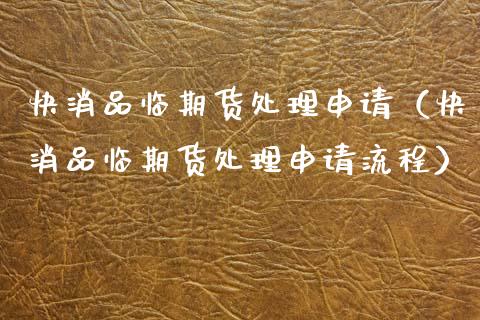 快消品临期货处理申请（快
消品临期货处理申请流程）